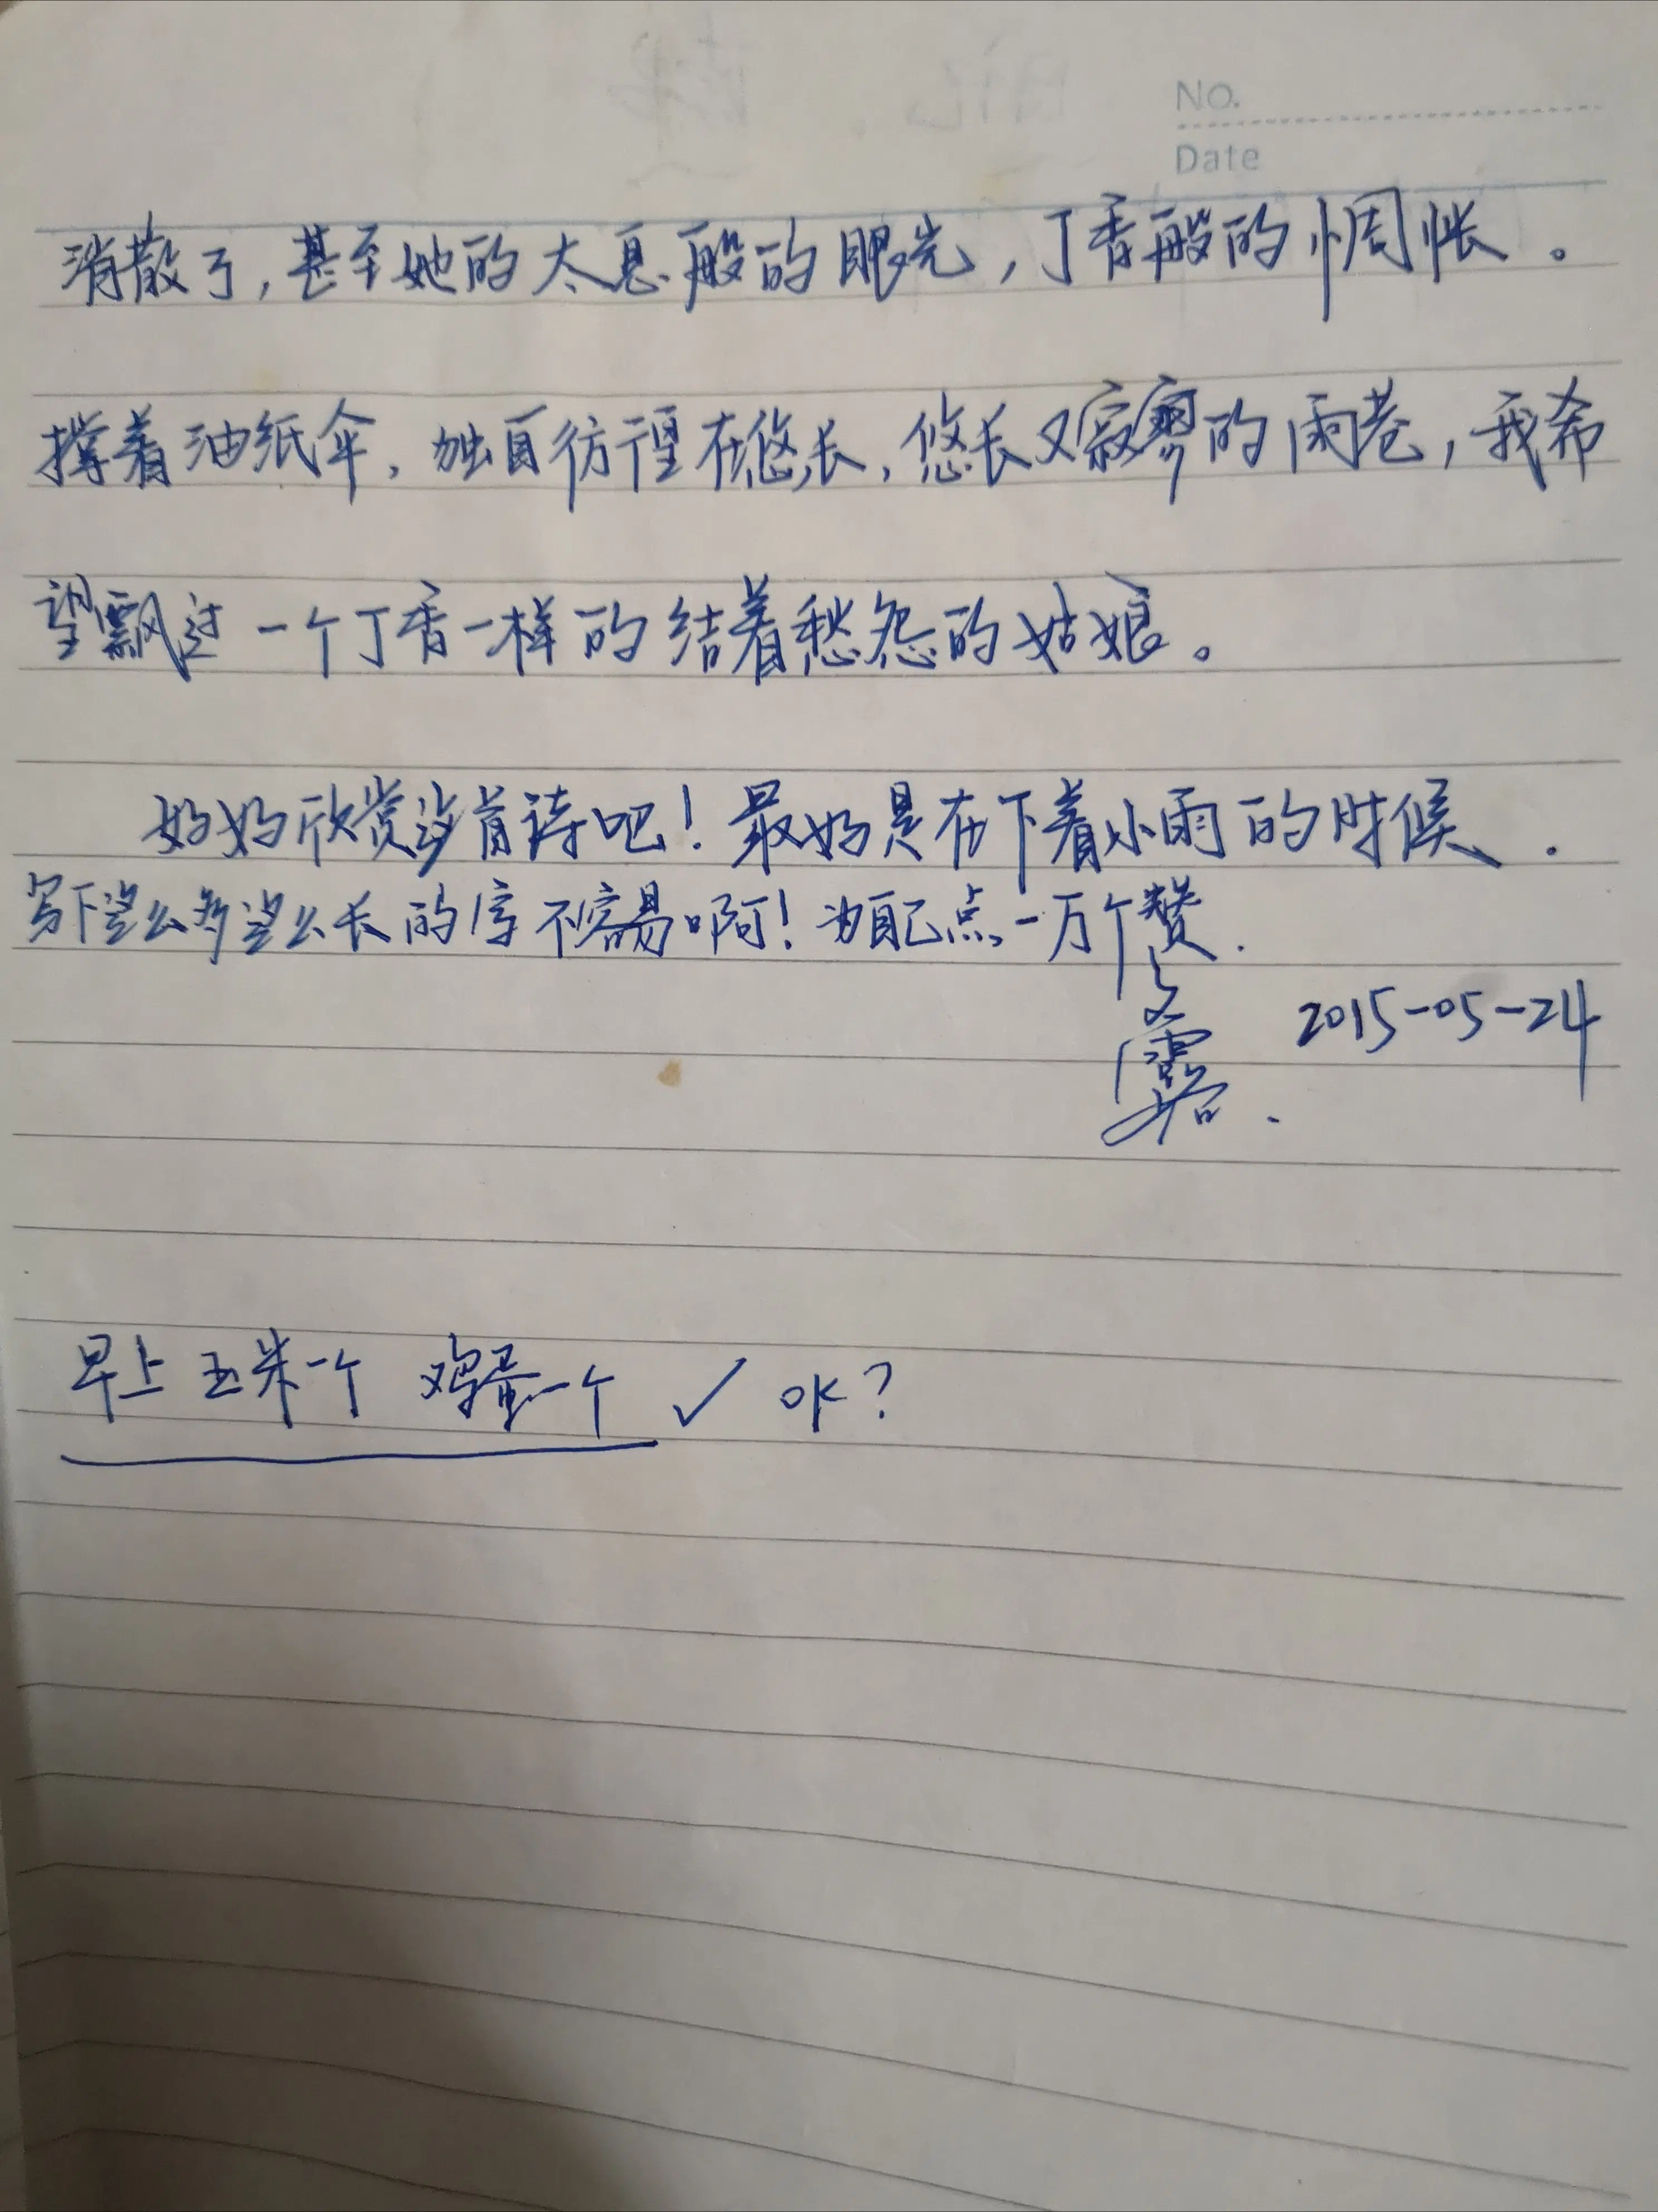 No.
Date
消散了,甚至她的太息般的眼光,丁香般的惆怅。
撑着油纸伞,独自彷徨在悠长,悠长又寂寥的雨巷,我希
望飘过一个丁香一样的结着愁怨的姑娘。
好好欣赏这首诗吧!最好是在下着小雨的时候.
写下这么多这么长的字不容易啊!为自己点一万个赞.
2015-05-24
早上玉米一个 鸡蛋一个 ✓ OK?